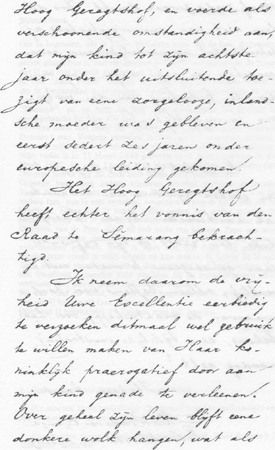 Hoog Geregtshof, en voerde als
verschoonende omstandigheid aan,
dat mijn kind tot zijn achtste
jaar onder het uitsluitende toe-
zigt van eene zorgelooze, inland-
sche moeder was gebleven en
eerst sedert zes jaren onder
europesche leiding gekomen.
Het Hoog Geregtshof
heeft echter het vonnis van den
Raad te Sémarang bekrach-
tigd.
Ik neem daarom de vrij-
heid Uwe Excellentie eerbiedig
te verzoeken ditmaal wel gebruik
te willen maken van Haar ko-
ninklijk praerogatief door aan
mijn kind genade te verleenen.
Over geheel zijn leven blijft eene
donkere wolk hangen, wat als